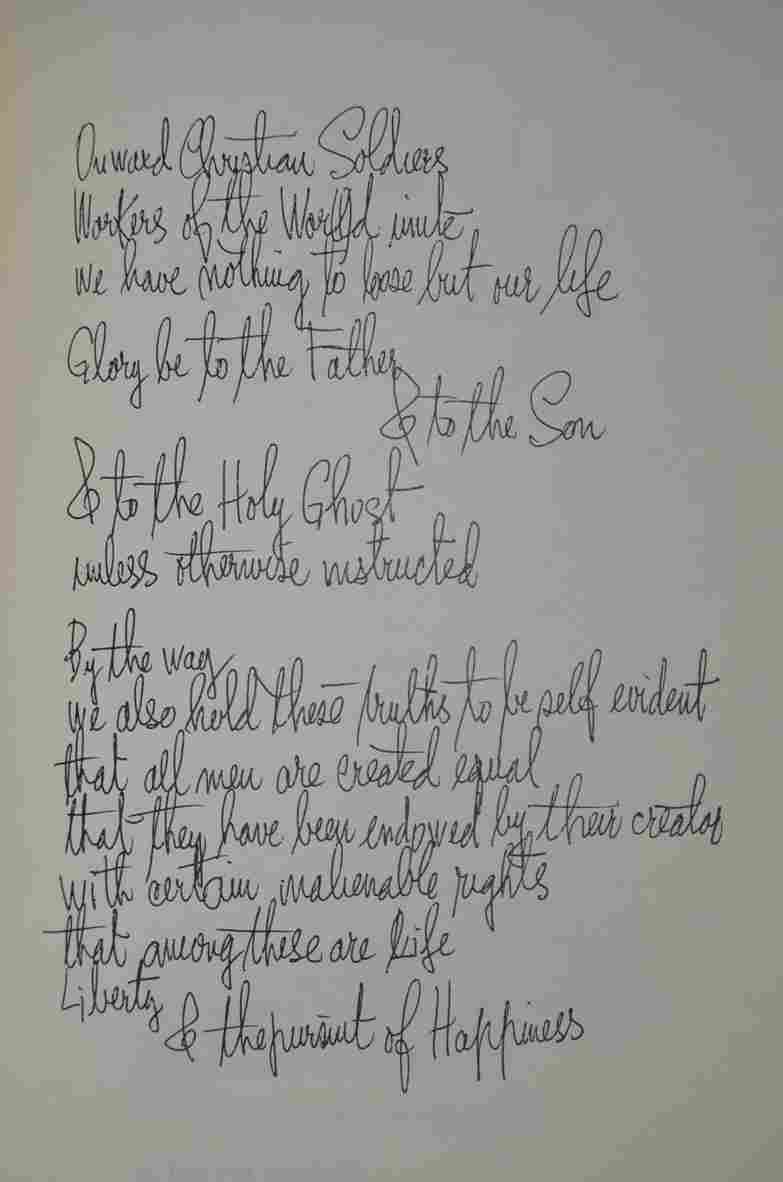 Onward Christian Soldiers
Workers of the World unite
we have nothing to loose but our life
Glory be to the Father
& to the Son
& to the Holy Ghost
unless otherwise instructed
By the way
we also hold these truths to be self evident
that all men are created equal
that they have been endowed by their creator
with certain inalienable rights
that among these are Life
Liberty
& the pursuit of Happiness